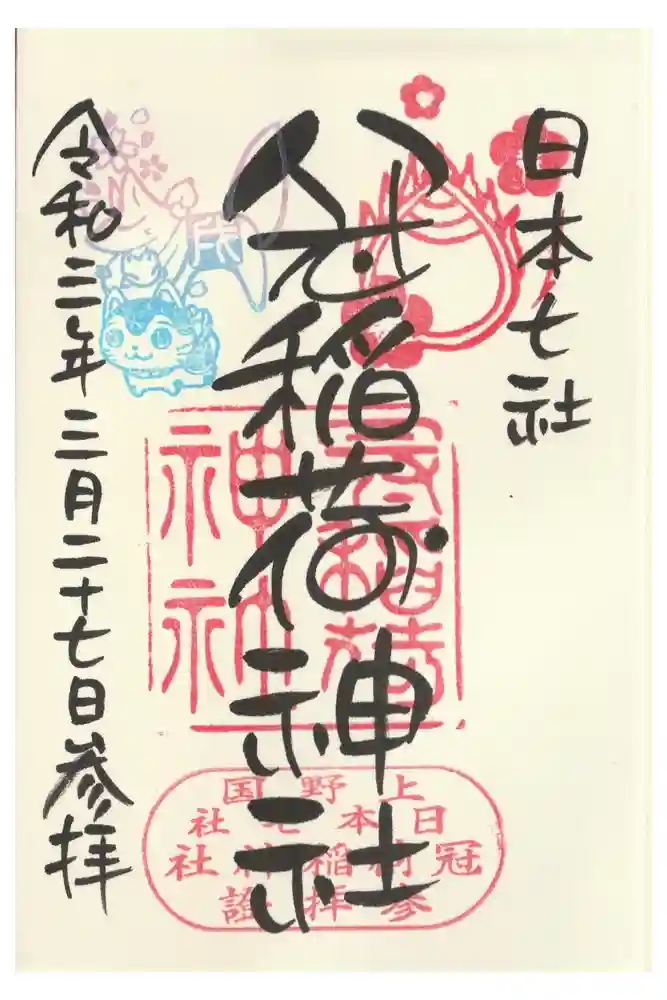 日本七社
冠稲荷神社
令和三年三月二十七日参拝
上野国
日本七社
冠稲荷神社
参拝證